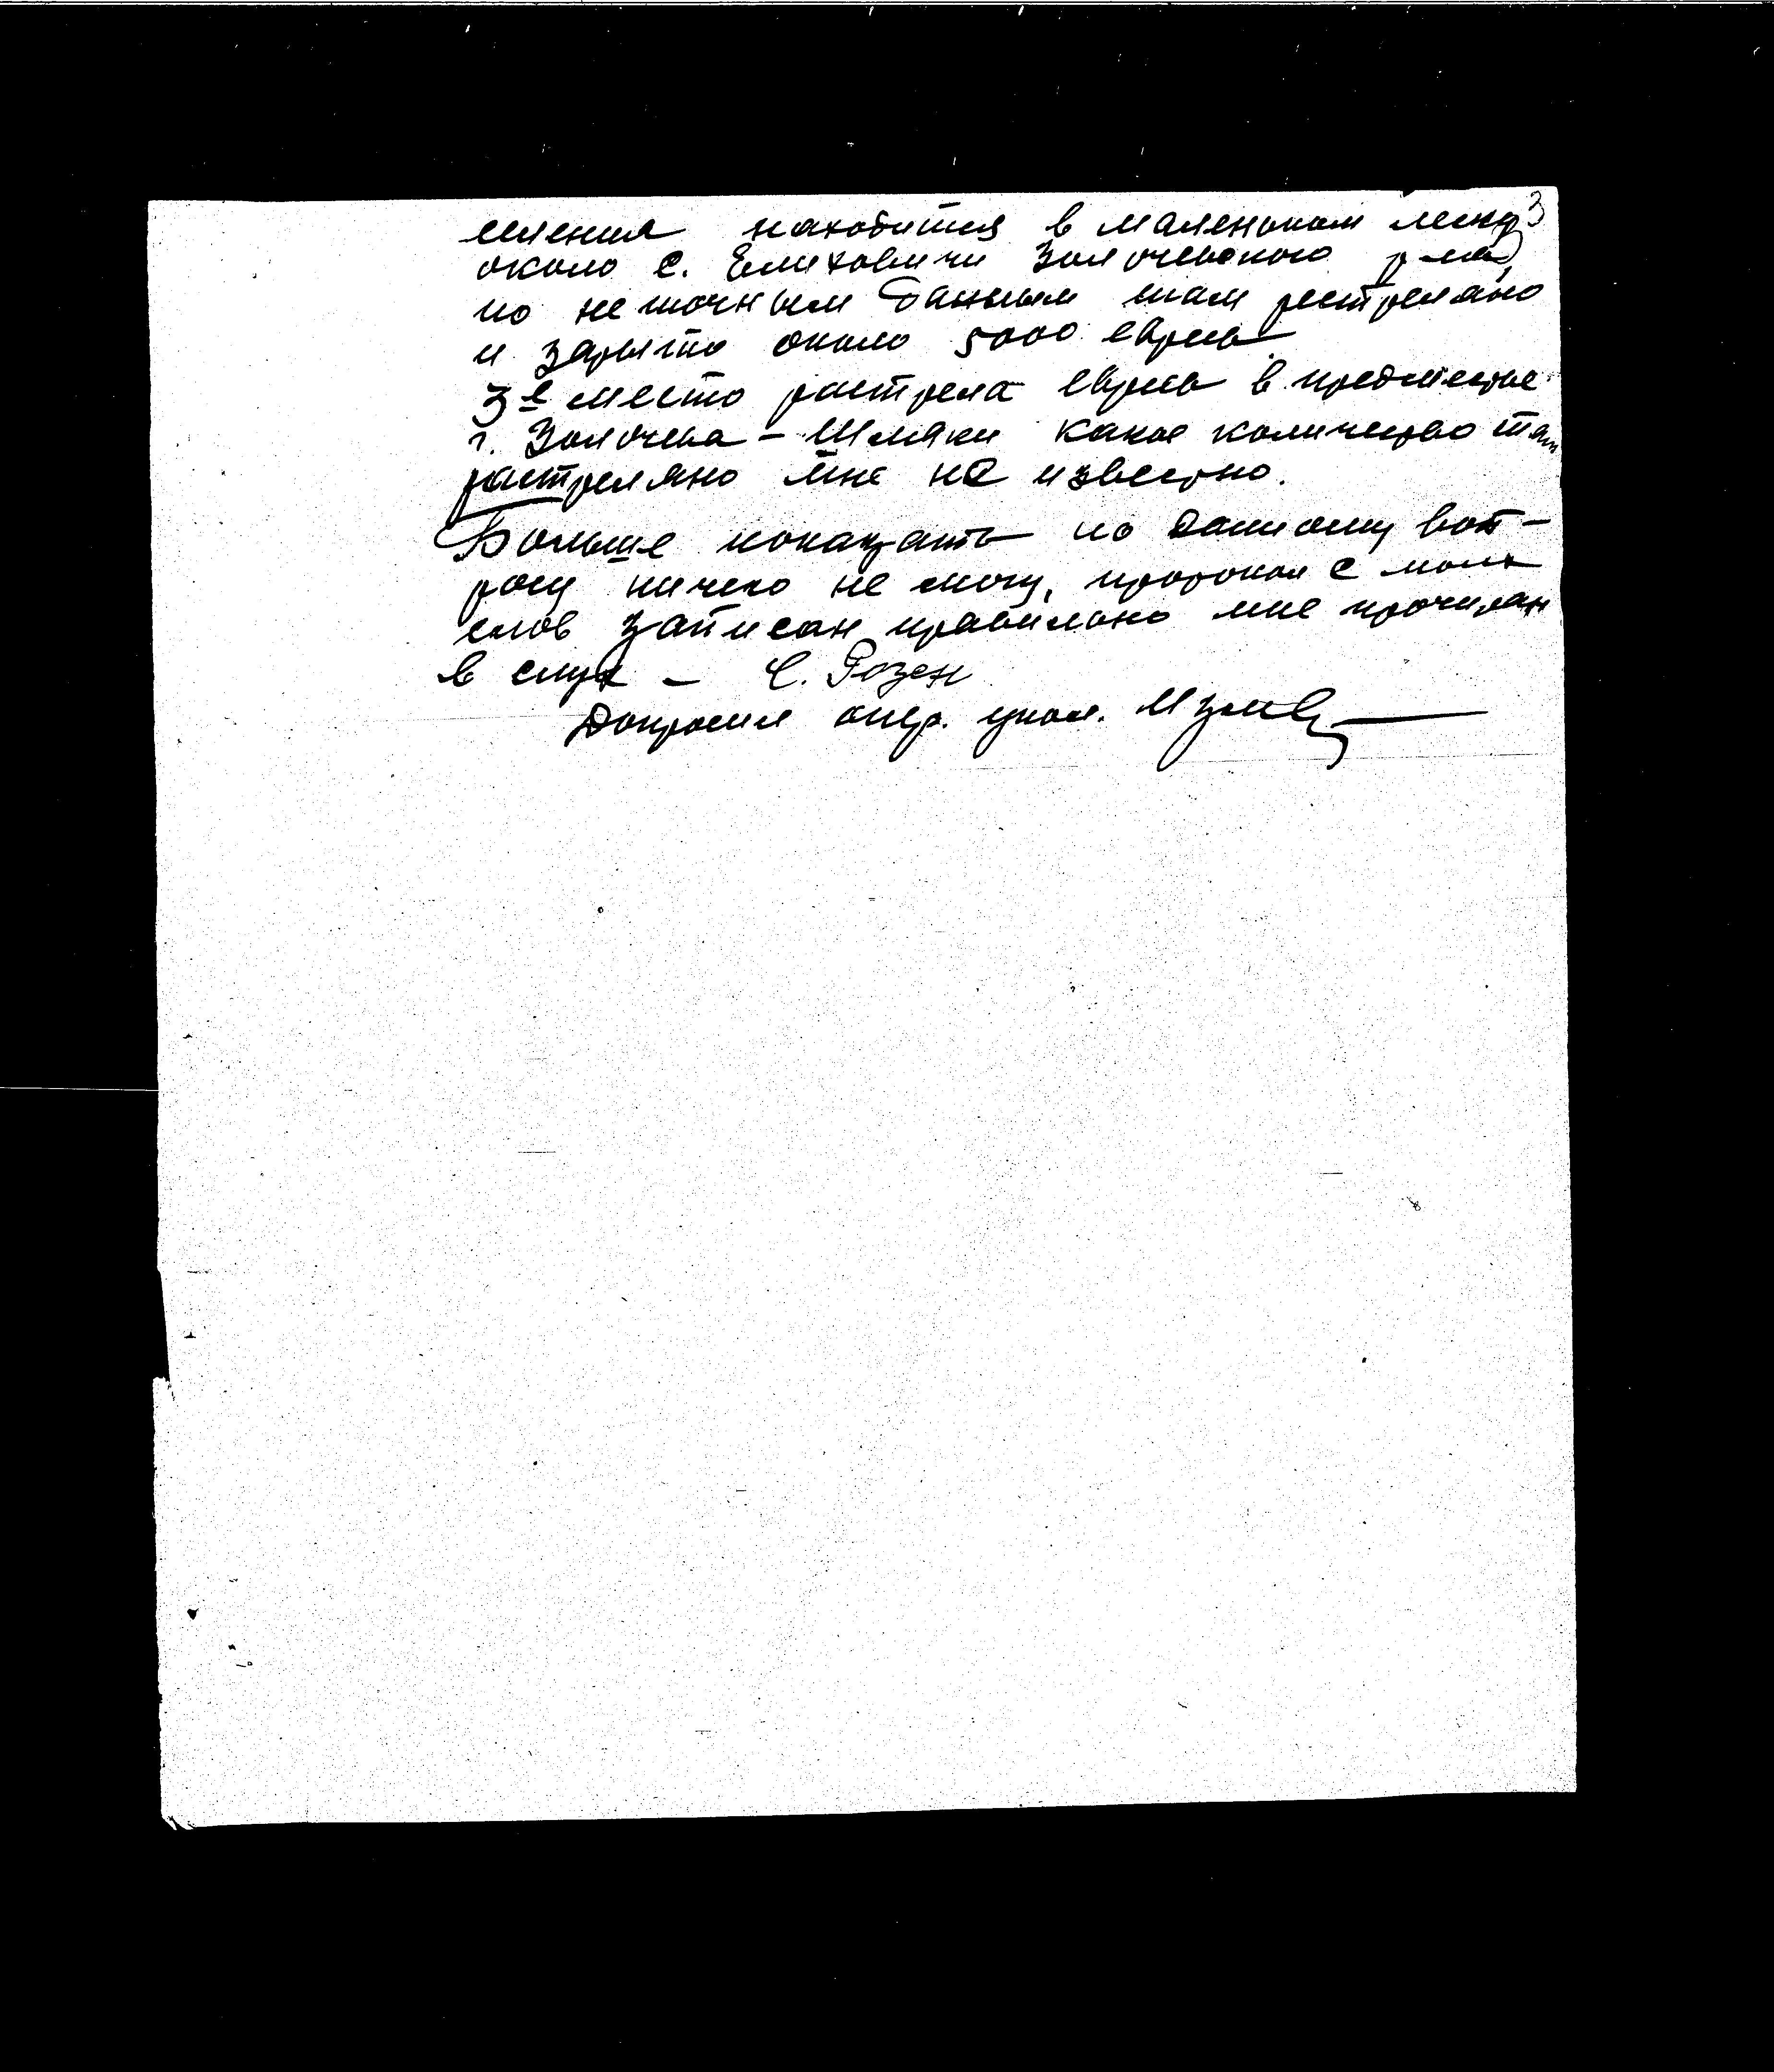 3
селения находится в маленьком леску
около с. Елиховичи Золочевского р-на,
по не точным данным там рестреляно
и зарыто около 5000 евреев
3е место растрела евреев в предместье
г. Золочева – Шляки какое количество там
растреляно мне не известно.
Больше показать по данному воп-
росу ничего не могу, протокол с моих
слов записан правильно мне прочитан
в слух – С. Розен
Допросил опер. упол.